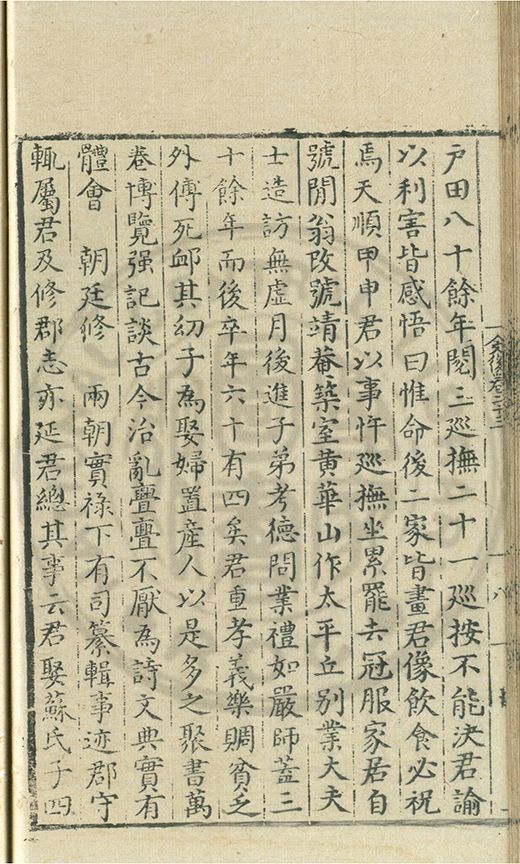 戸田八十餘年閱三廵撫二十一廵按不能决君諭
以利害皆感悟曰惟命後二家皆畫君像飲食必祝
焉天順甲申君以事忤廵撫坐累罷去冠服家居自
號閒翁攺號靖菴築室黄華山作太平丘别業大夫
士造訪無虚月後進子弟考德問業禮如嚴師蓋三
十餘年而後卒年六十有四矣君重孝義樂賙貧乏
外傅死邺其幼子為娶婦置産人以是多之聚書萬
卷博覽强記談古今治亂亹亹不厭為詩文典實有
體會　朝廷修　兩朝實祿下有司纂輯事迹郡守
輒屬君及修郡志亦延君總其事云君娶蘇氏子四